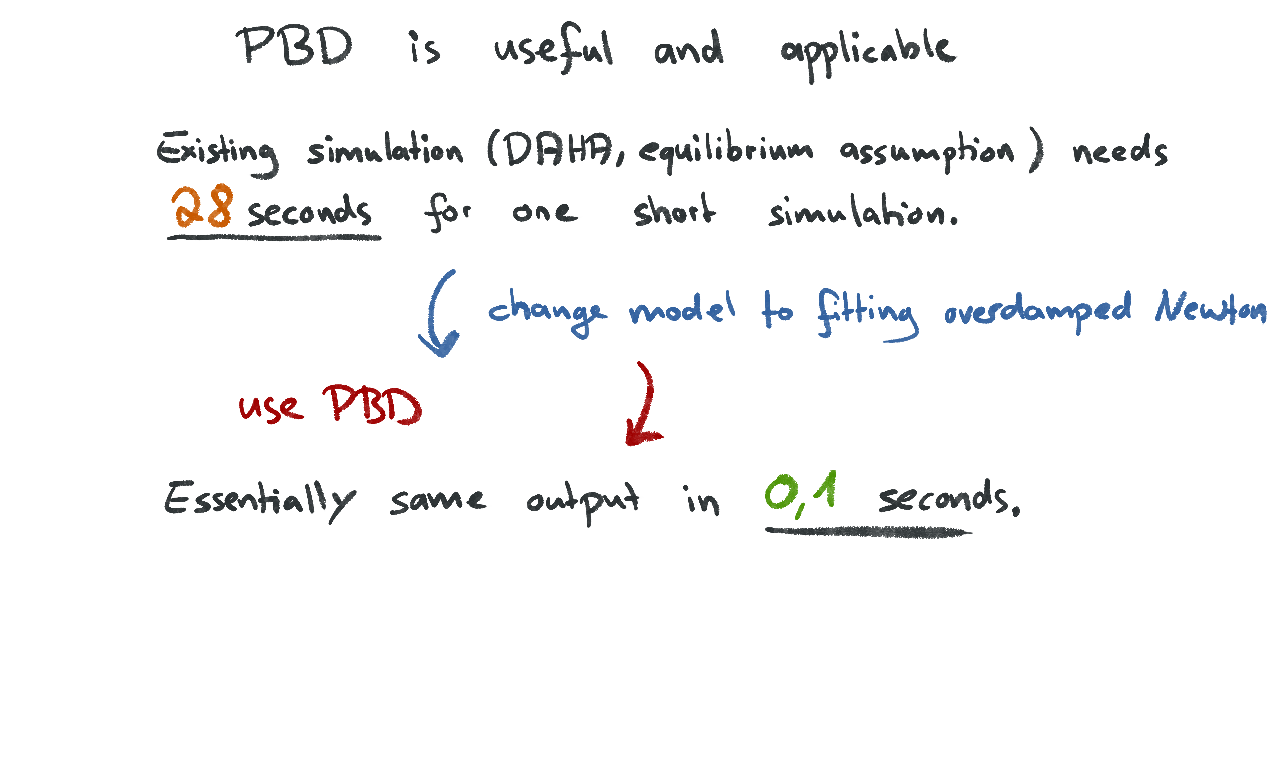 PBD is useful and applicable
Existing simulation (DAHA, equilibrium assumption) needs
28 seconds for one short simulation.
change model to fitting overdamped Newton
use PBD
Essentially same output in 0,1 seconds.